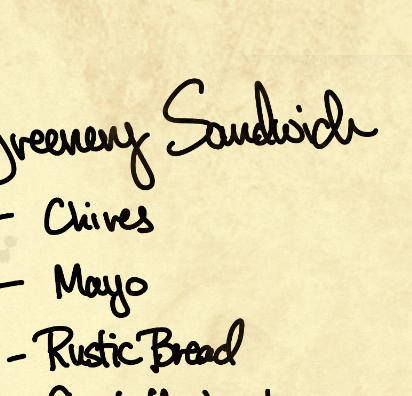 Greenery Sandwich
- Chives
- Mayo
- Rustic Bread